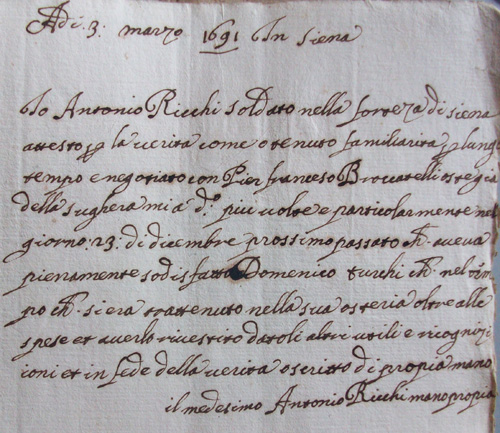 Adi: 3: marzo 1691 In siena
Io Antonio Ricchi soldato nella fortezza di siena
attesto p la verità come ò tenuto familiarità p lungo
tempo e negotiato con Pier francesco Broccatelli oste già
della sughera mi à d.º più volte e particolarmente nel
giorno: 23: di dicembre prossimo passato ch- aveva
pienamente sodisfatto Domenico turchi ch- nel
po ch- si era trattenuto nella sua osteria oltre alle
spese et averlo rivestito datoli altri utili e ricogniz
ioni et in fede della verità ò scritto di propia mano
il medesimo Antonio Ricchi mano propia